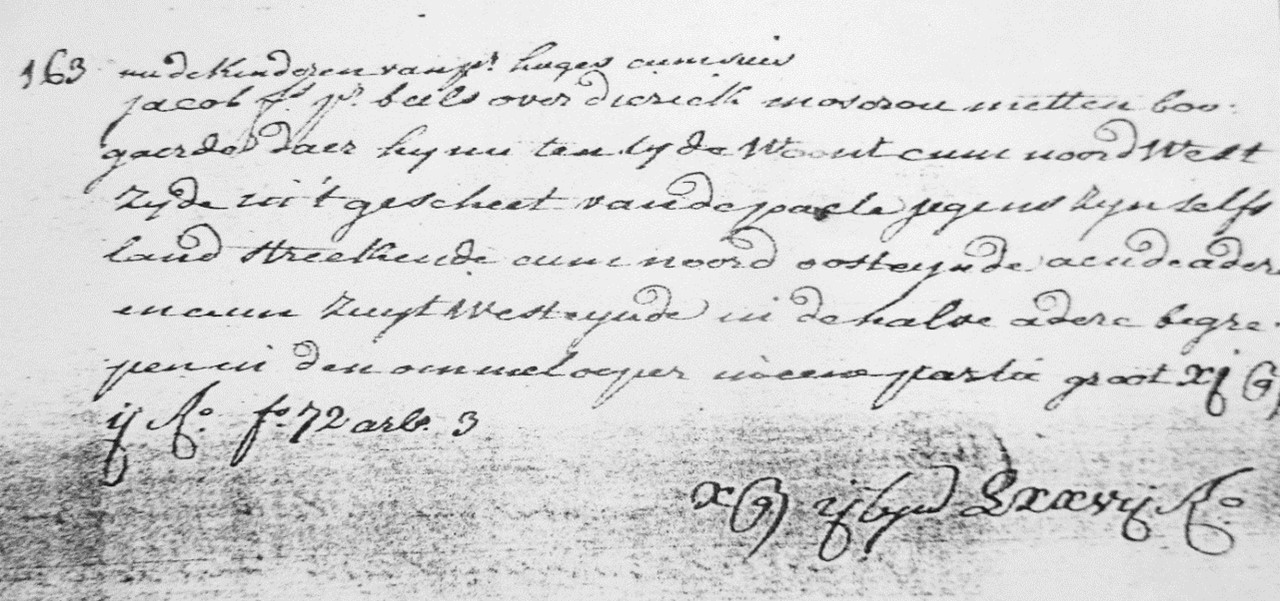 163 nu de Kinderen van pr. hages cum suis
jacob fs. pr. beels over dierick moscrou metten boo-
gaerde daer hy nu ten tyde Woont cum noord West
Zyde uit gescheet vande paele jegens hyn selfs
land streckende cum noord oosteynde aende adere
en cum Zuyt Westeynde in de halve adere begre-
pen in den ommelooper in eene partie groot xj G
ij Ro. fo. 72 arle. 3
x G ij lynd Lxxvij Ro.